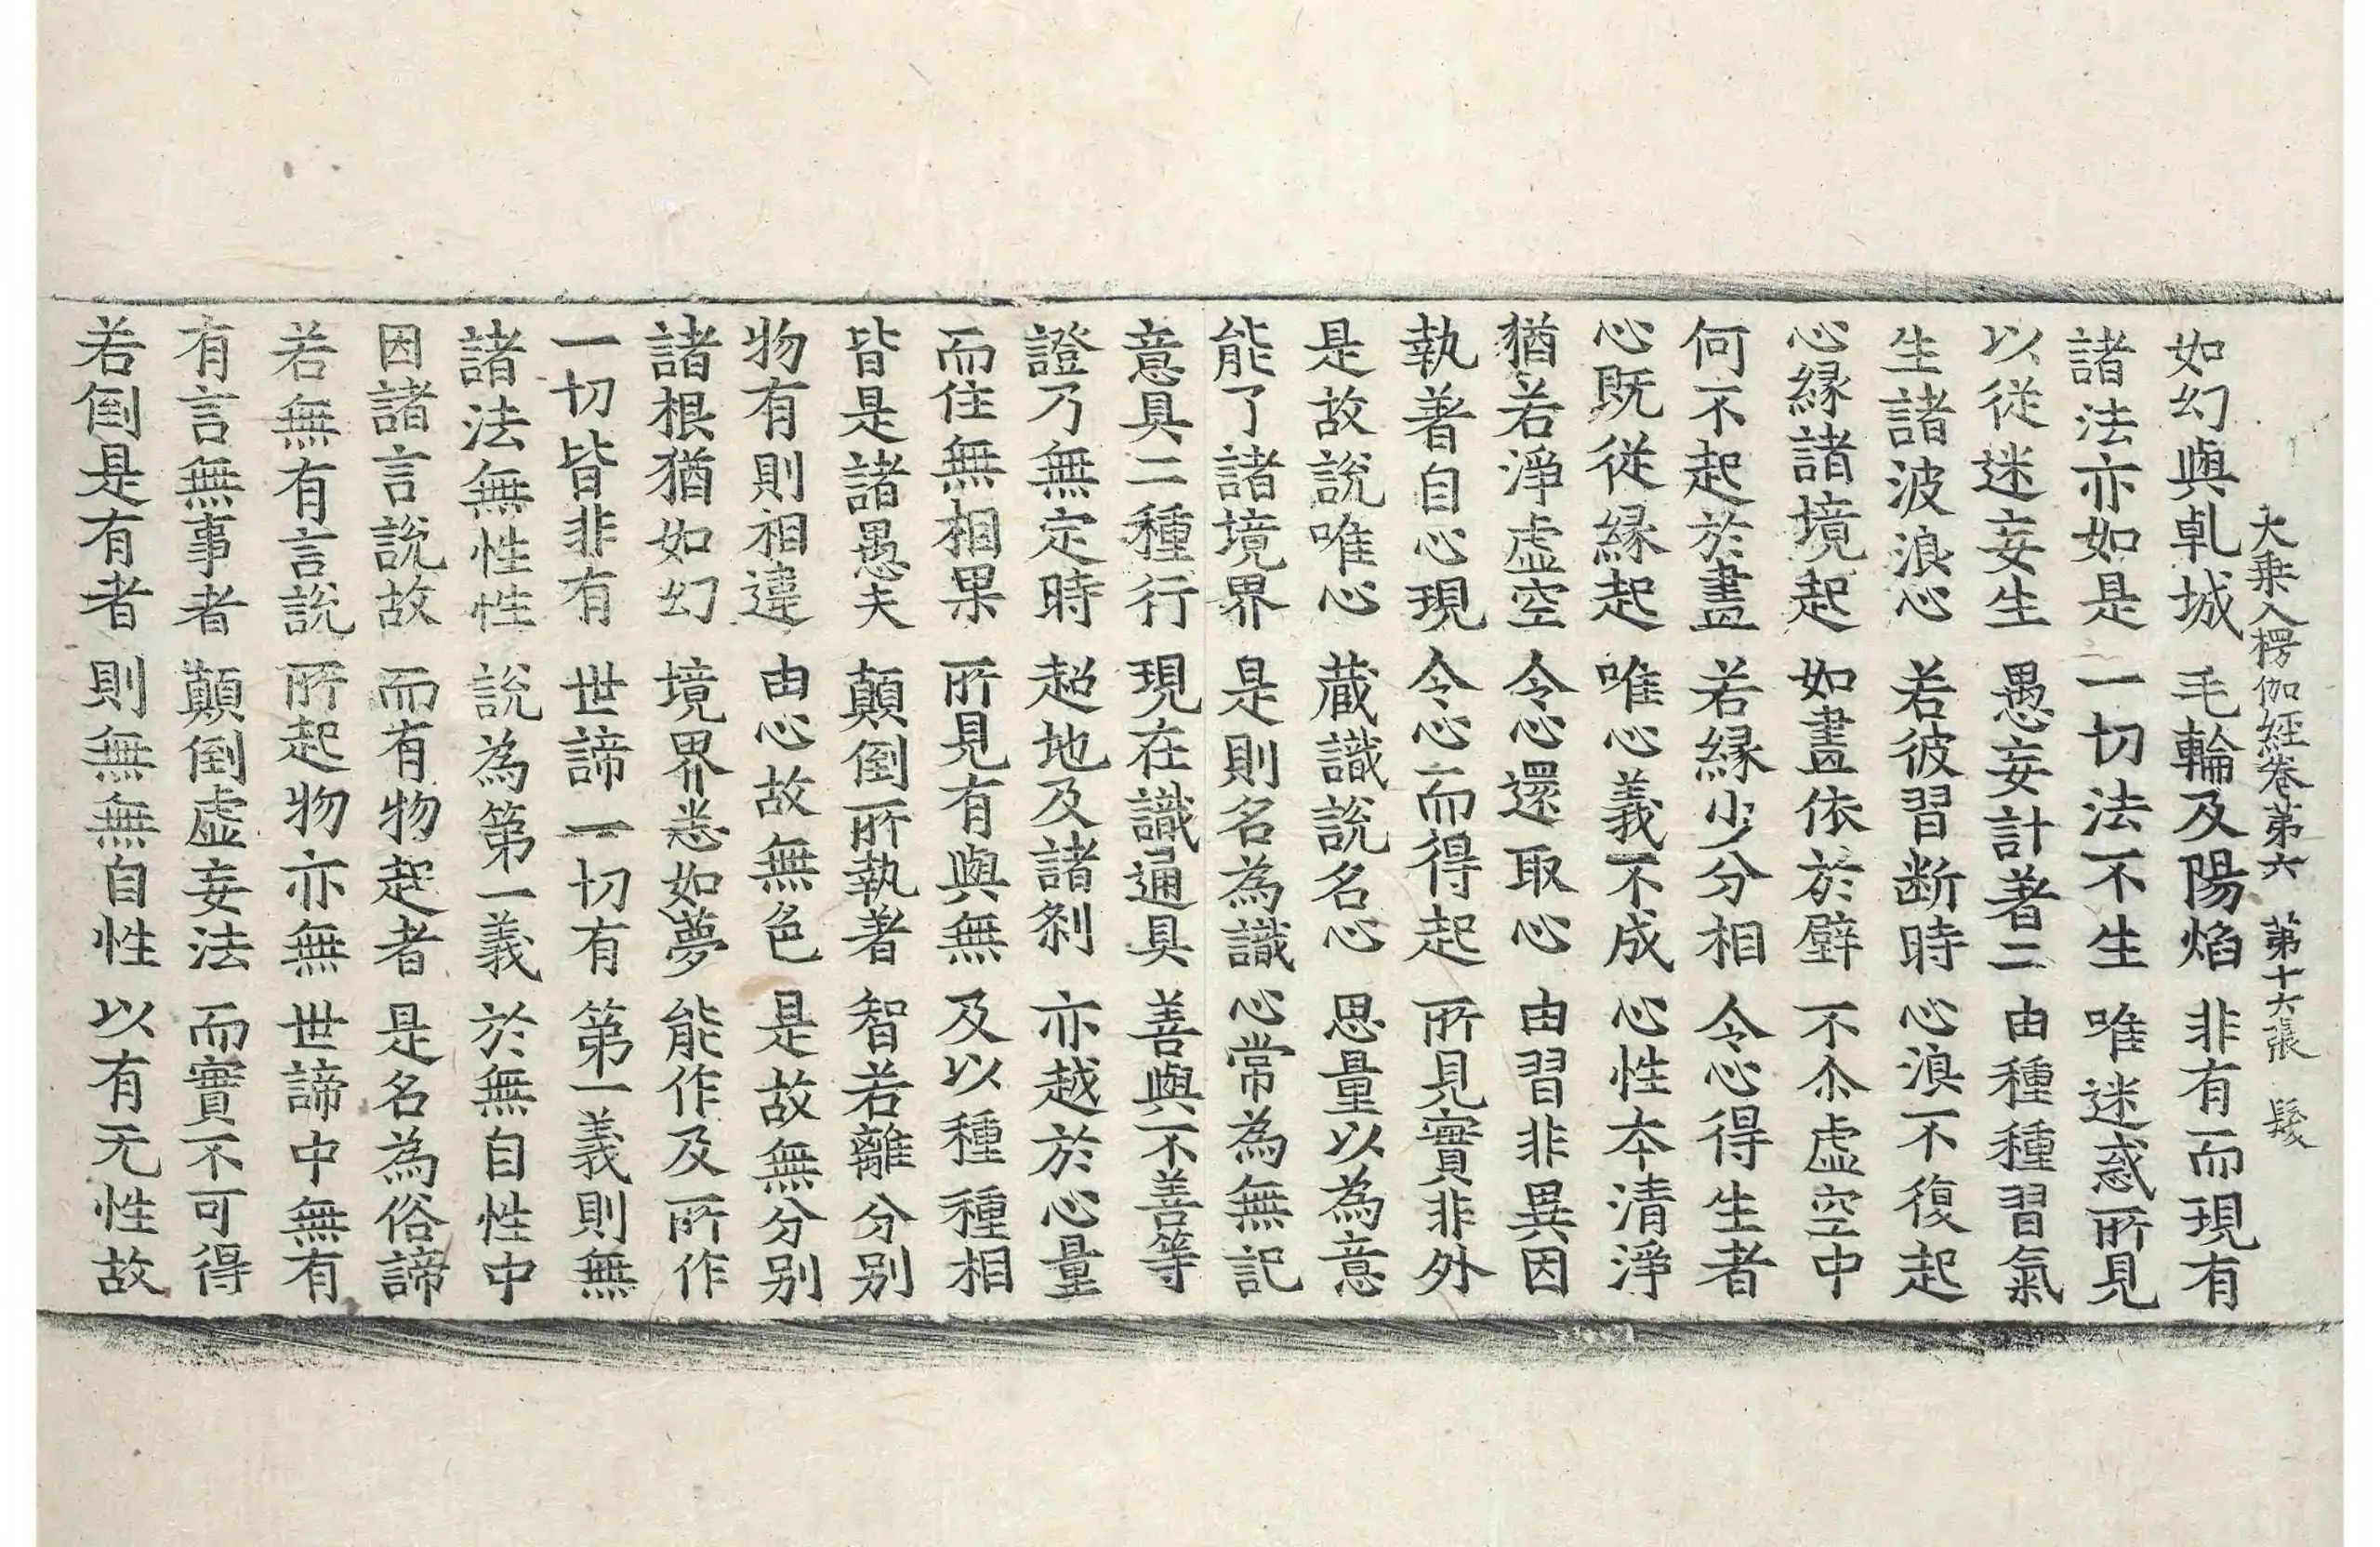 大乗入楞伽經卷第六 第十六張 髮
如幻與乹城 毛輪及陽焰 非有而現有
諸法亦如是 一切法不生 唯迷惑所見
以從迷妄生 愚妄計著二 由種種習氣
生諸波浪心 若彼習断時 心浪不復起
心縁諸境起 如畫依於壁 不尒虚空中
何不起於畫 若縁少分相 令心得生者
心既從縁起 唯心義不成 心性本清淨
猶若淨虚空 令心還取心 由習非異因
執著自心現 令心而得起 所見實非外
是故說唯心 蔵識說名心 思量以為意
能了諸境界 是則名為識 心常為無記
意具二種行 現在識通具 善與不善等
證乃無定時 超地及諸刹 亦越於心量
而住無相果 所見有與無 及以種種相
皆是諸愚夫 顛倒所執著 智若離分别
物有則相違 由心故無色 是故無分别
諸根猶如幻 境界悉如夢 能作及所作
一切皆非有 世諦一切有 第一義則無
諸法無性性 說為第一義 於無自性中
因諸言說故 而有物起者 是名為俗諦
若無有言說 所起物亦無 世諦中無有
有言無事者 顛倒虚妄法 而實不可得
若倒是有者 則無無自性 以有无性故